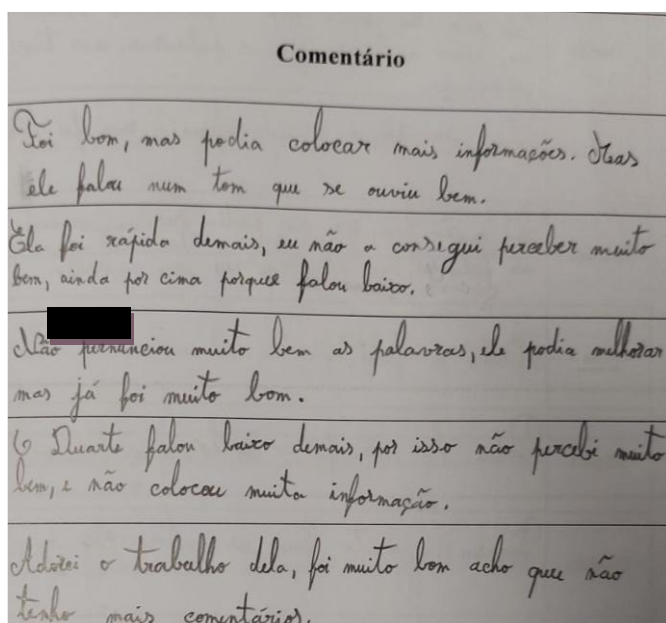 Comentário
Foi bom, mas podia colocar mais informações. Mas
ele falou num tom que se ouviu bem.
Ela foi rápida demais, eu não a consegui perceber muito
bem, ainda por cima porque falou baixo.
Não pernunciou muito bem as palavras, ele podia melhorar
mas já foi muito bom.
O Duarte falou baixo demais, por isso não percebi muito
bem, e não colocou muita informação.
Adorei o trabalho dela, foi muito bom acho que não
tenho mais comentários.